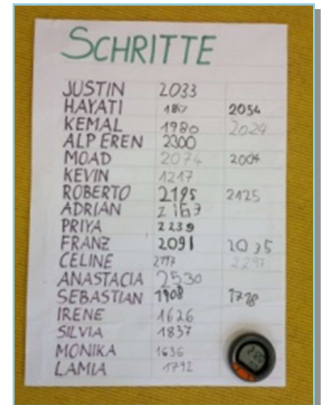 SCHRITTE
JUSTIN 2033
HAYATI 1867 2054
KEMAL 1980 2024
ALP EREN 2300
MOAD 2074 2004
KEVIN 1217
ROBERTO 2195 2125
ADRIAN 2163
PRIYA 2239
FRANZ 2091 2035
CELINE 2297
ANASTACIA 2530
SEBASTIAN 1908 1728
IRENE 1626
SILVIA 1837
MONIKA 1636
LAMIA 1792